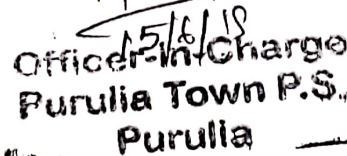 15/6/18
Officer-In-Charge
Purulia Town P.S.
Purulia